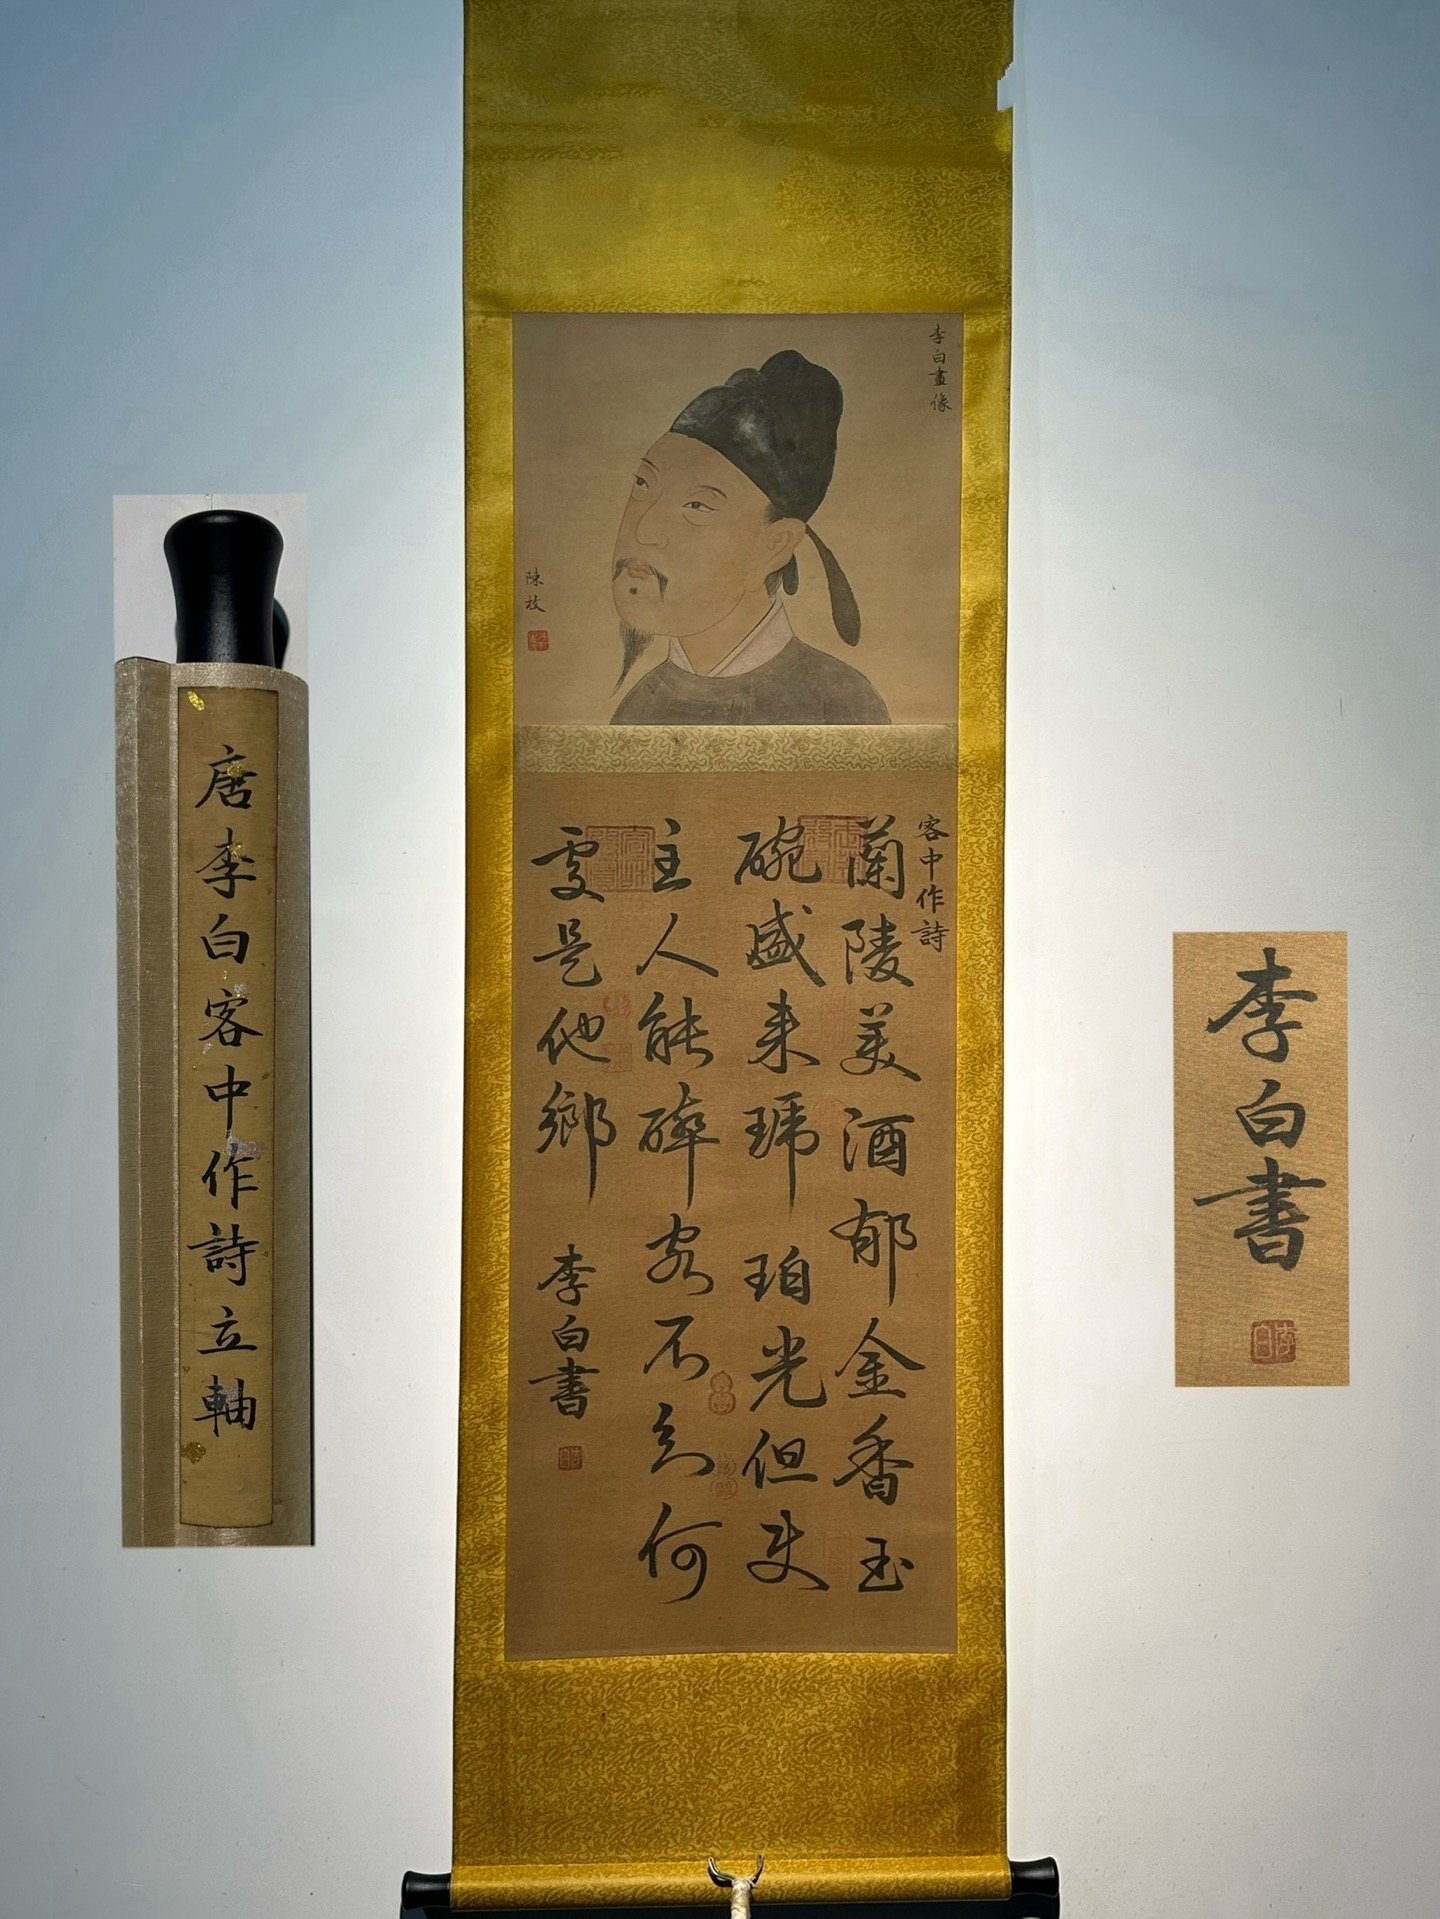 李白畫像
陳枚
客中作詩
蘭陵美酒郁金香玉
碗盛来琥珀光但使
主人能醉客不知何
處是他鄉
李白書
唐李白客中作詩立軸
李白書
李白